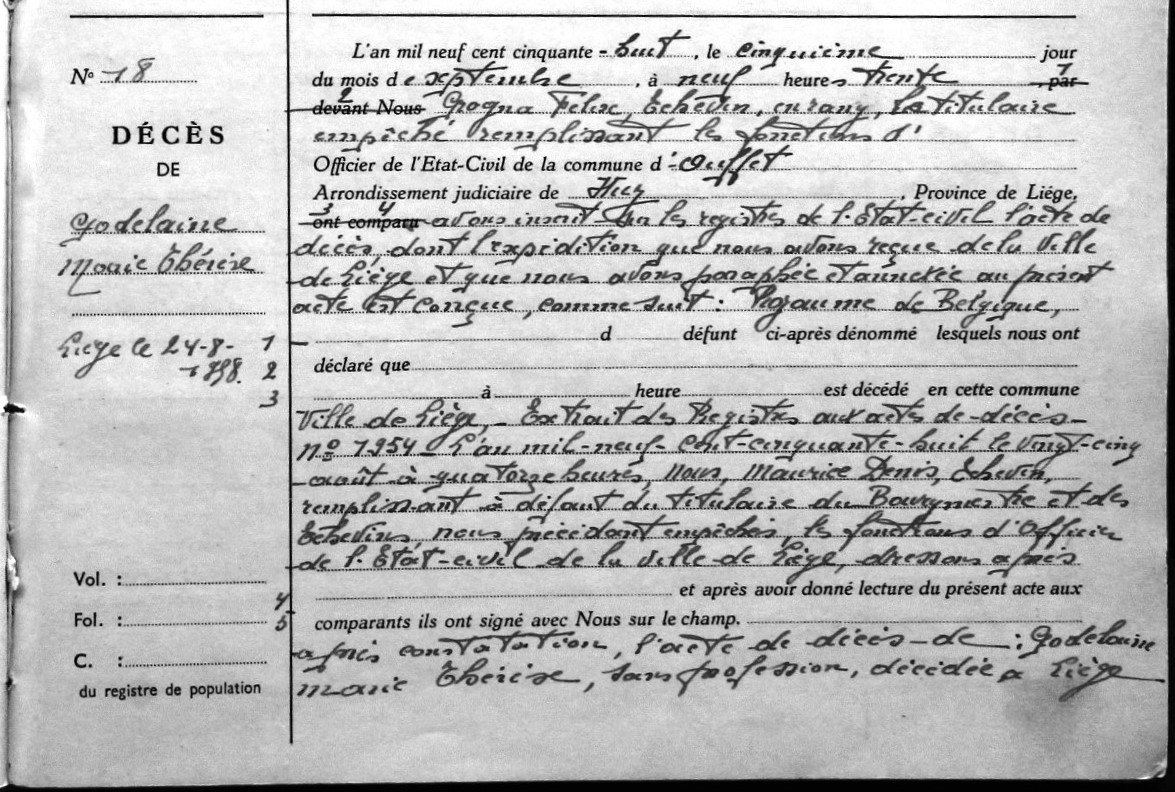 N° 18
DÉCÈS
DE
Godelaine
Marie Thérèse
Liège le 24-8-
1958.
1
2
3
4
5
Vol. :
Fol. :
C. :
du registre de population
L'an mil neuf cent cinquante - huit , le cinquième jour
du mois de septembre , à neuf heures trente , par 1
devant Nous 2 Grogna Félix Echevin, en rang, le titulaire
empêché remplissant les fonctions d'
Officier de l'Etat-Civil de la commune d'Ouffet
Arrondissement judiciaire de Huy , Province de Liège,
3 ont comparu 4 avons inscrit sur les registres de l'Etat-civil l'acte de
décès, dont l'expédition que nous avons reçue de la Ville
de Liège et que nous avons paraphée et annexée au présent
acte est conçue, comme suit : Royaume de Belgique,
d défunt ci-après dénommé lesquels nous ont
déclaré que
à heure est décédé en cette commune
Ville de Liège, - Extrait des Registres aux actes de décès -
N° 1954 - L'an mil-neuf-cent-cinquante-huit le vingt-cinq
août à quatorze heures, Nous, Maurice Denis, Echevin,
remplissant à défaut du titulaire du Bourgmestre et des
Echevins nous précédant empêchés, les fonctions d'Officier
de l'Etat-civil de la Ville de Liège, dressons après
et après avoir donné lecture du présent acte aux
comparants ils ont signé avec Nous sur le champ.
après constatation, l'acte de décès de : Godelaine
Marie Thérèse, sans profession, décédée à Liège